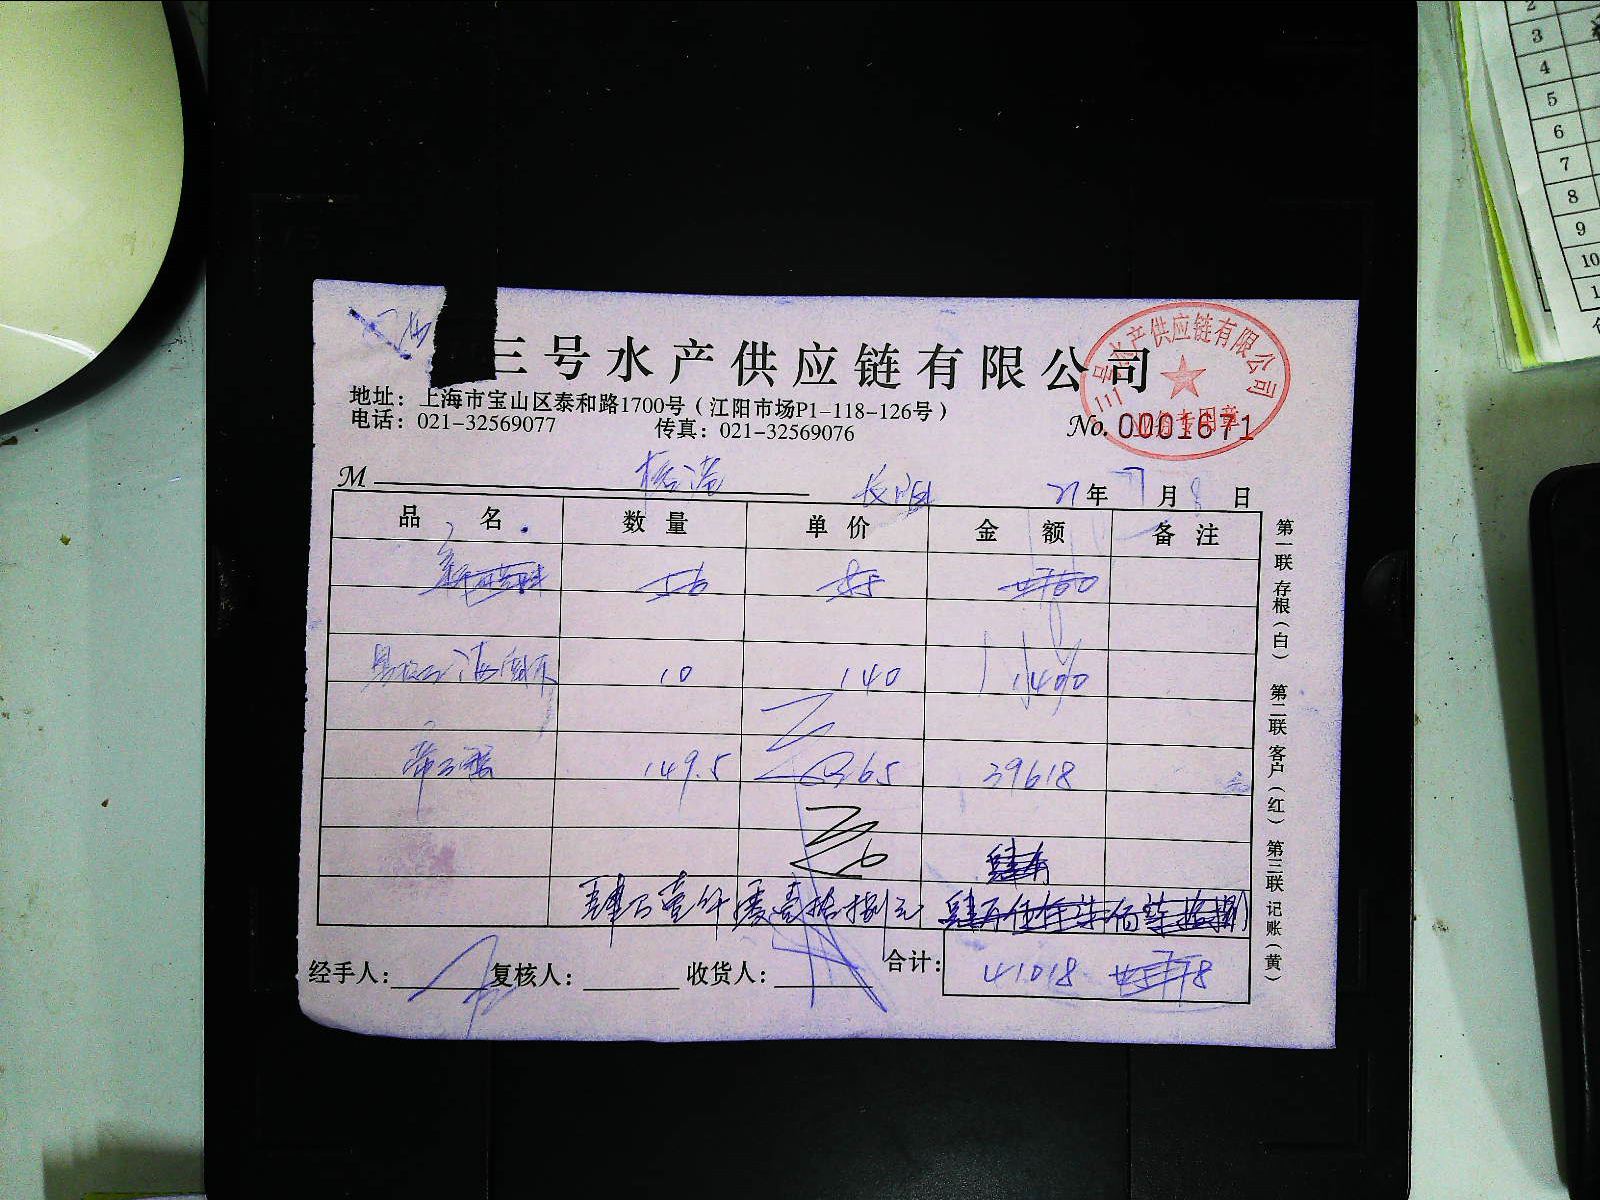 三号水产供应链有限公司
三号水产供应链有限公司
业务专用章
地址：上海市宝山区泰和路1700号（江阳市场P1-118-126号）
电话：021-32569077 传真：021-32569076
No. 0001671
M 21年 7月 8日
品 名 数 量 单 价 金 额 备 注
10 140 1400
149.5 265 39618
肆万壹仟零壹拾捌元
合计：41018
经手人： 复核人： 收货人：
第一联 存根（白） 第二联 客户（红） 第三联 记账（黄）
2
3
4
5
6
7
8
9
10